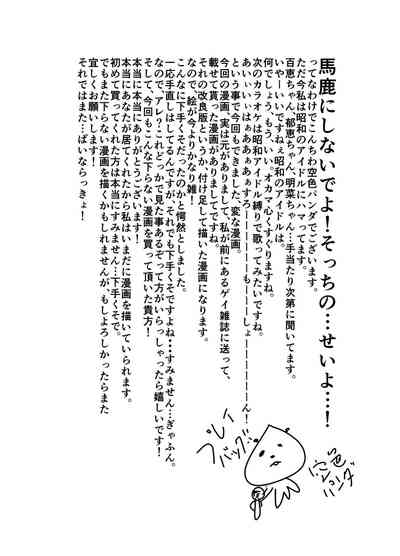 馬鹿にしないでよ！そっちの…せいよ…！
ってなわけでこんちわ空色パンダでございます。
ただ今私は昭和のアイドルにハマってます。
百恵ちゃん、郁恵ちゃん、明菜ちゃん…手当たり次第に聞いてます。
いやーいいですねぇ昭和のアイドルは。
何でしょう、もう、いい、オカマ心くすぐりますね。
次のカラオケは昭和アイドル縛りで歌ってみたいですね。
という事で今回もできました、変な漫画。
今回の漫画、実は元がありまして、私が前にあるゲイ雑誌に送って、
載せて貰った漫画がありましてですね。
それの改良版というか、付け足して描いた漫画になります。
なので、絵が今よりかなり雑！
こんなに下手くそだったのかと愕然としました。
一応手直しはしてるんですが、それでも下手くそですよね…すみません…ぎゃふん。
なので、アレ？これどっかで見た事あるぞって方がいらっしゃったら嬉しいです！
そして、今回もこんな下らない漫画を買って頂いた貴方！
本当に本当にありがとうございます！
本当にあなたが居てくれたから私はいまだに漫画を描いていられます。
初めて買ってくれた方は本当にすみません…下手くそで。
でもまた下らない漫画を描くかもしれませんが、もしよろしかったらまた
宜しくお願いします！
それではまた…ばいならっきょ！
プレイ
バッグ!!
空色
パンダ